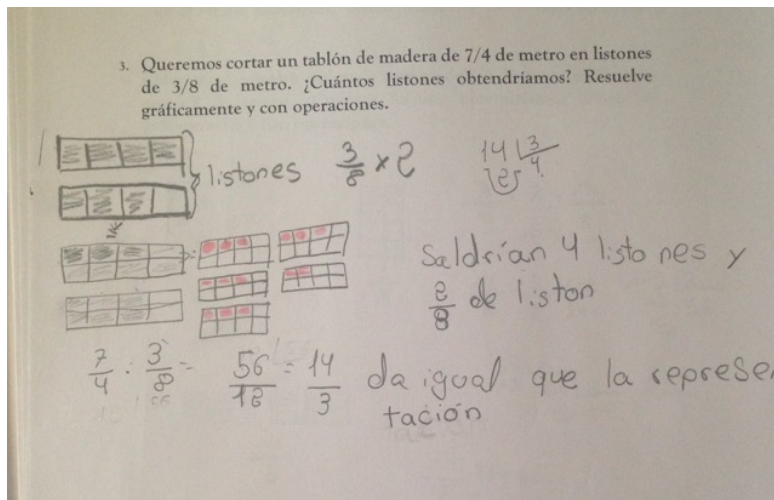 3. Queremos cortar un tablón de madera de 7/4 de metro en listones
de 3/8 de metro. ¿Cuántos listones obtendríamos? Resuelve
gráficamente y con operaciones.
listones 3/8 × 2 14 3
(2) 4
Saldrían 4 listones y
2/8 de liston
7/4 : 3/8 = 56/12 = 14/3 da igual que la represe
tación